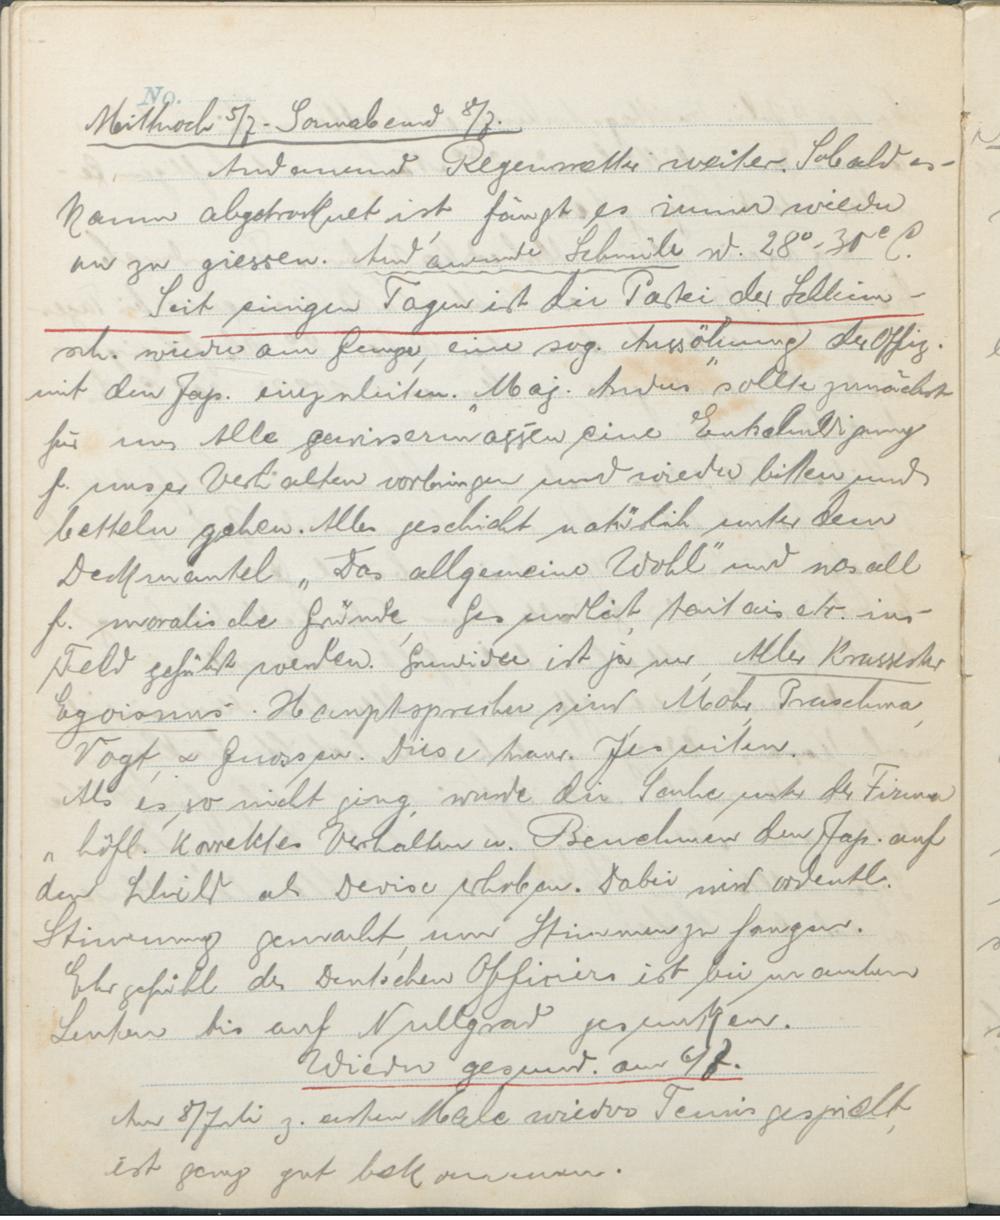 No.
Mittwoch 5/7. - Sonnabend 8/7.
Andauernd Regenwetter weiter. Sobald es
kaum abgetrocknet ist, fängt es immer wieder
an zu giessen. Andauernde Schwüle v. 28° - 30° C.
Seit einigen Tagen ist die Partei der Schleim-
sch. wieder am Gange, eine sog. Aussöhnung der Offiz.
mit den Jap. einzuleiten. Maj. "Anders" sollte zunächst
für uns Alle gewissermassen eine Entschuldigung
f. unser Verhalten vorbringen und wieder bitten und
betteln gehen. Alles geschieht natürlich unter dem
Deckmantel „Das allgemeine Wohl" und
f. moralische Gründe, Gesundheit, etc. ins
Feld geführt werden. ist ja nur Aller krassester
Egoismus. Hauptsprecher sind Mohr, Praschma,
Vogt, & Genossen. Diese Jesuiten.
Als es so nicht ging, wurde die Sache unter der Firma
„höfl. korrektes Verhalten u. Benehmen den Jap. auf
den Schild als Devise erhoben. Dabei wird ordentl.
Stimmung gemacht, um Stimmen zu fangen.
Ehrgefühl des Deutschen Officiers ist bei manchen
Leuten bis auf Nullgrad gesunken.
Wieder gesund. am 6/7.
Am 8/Juli z. ersten Male wieder Tennis gespielt,
ist ganz gut bekommen.